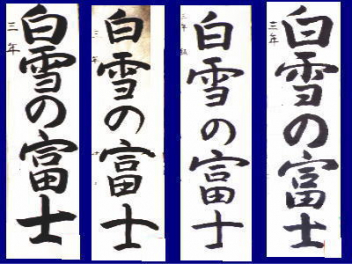 白雪の富士
三年
白雪の富士
白雪の富士
白雪の富士
三年